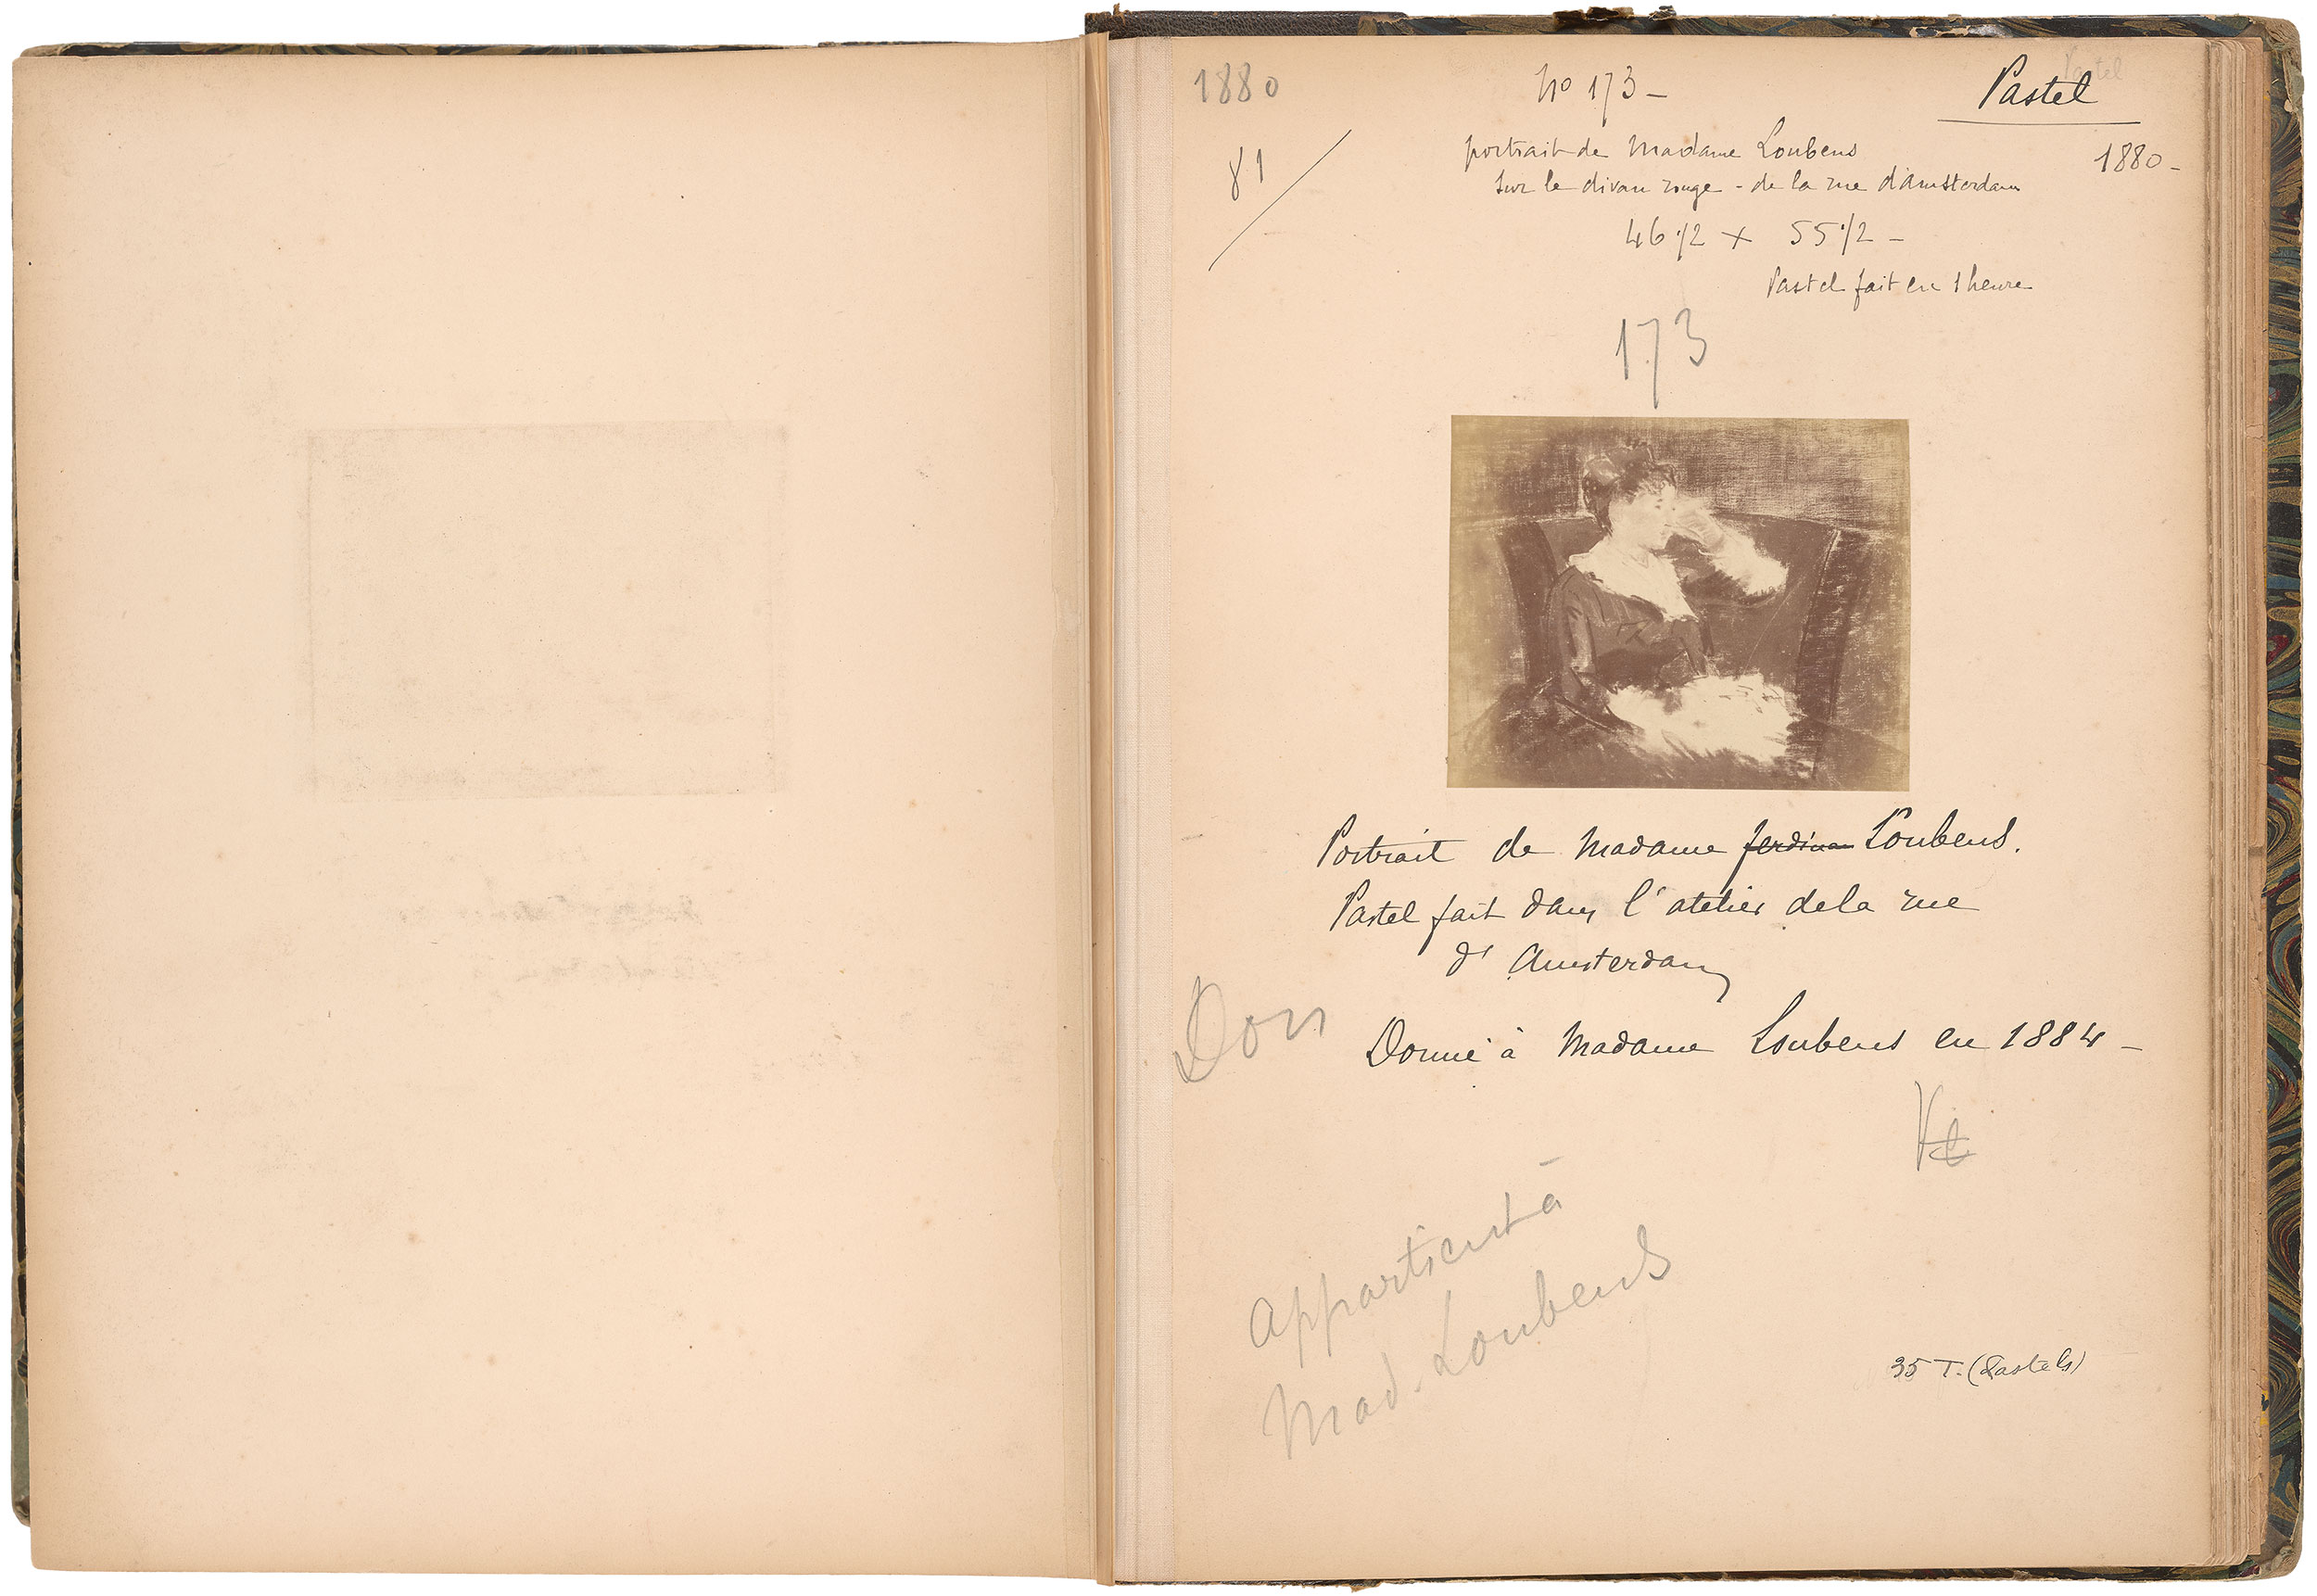 1880
No 173 –
Pastel
Pastel
81
portrait de Madame Loubens
sur le divan rouge - de la rue d'amsterdam
1880 -
46 1/2 x 55 1/2 –
Pastel fait en 1 heure
173
Portrait de Madame ferdinan Loubens.
Pastel fait dans l'atelier de la rue
d'Amsterdam
Don
Donné à Madame Loubens en 1884 –
appartient à
Mad. Loubens
35 T. (Pastels)